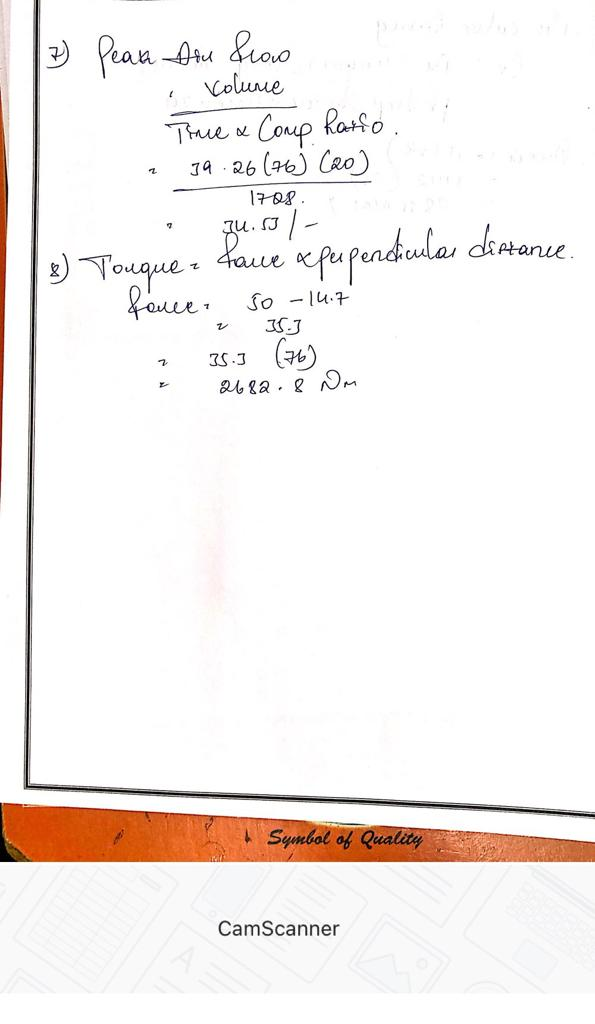 7) Peak Air flow
= Volume
Time x Comp Ratio.
= 39.26 (76) (20)
1728.
= 34.53 /-
8) Torque = force x perpendicular distance.
force = 50 - 14.7
= 35.3
= 35.3 (76)
= 2682.8 Nm
Symbol of Quality
CamScanner